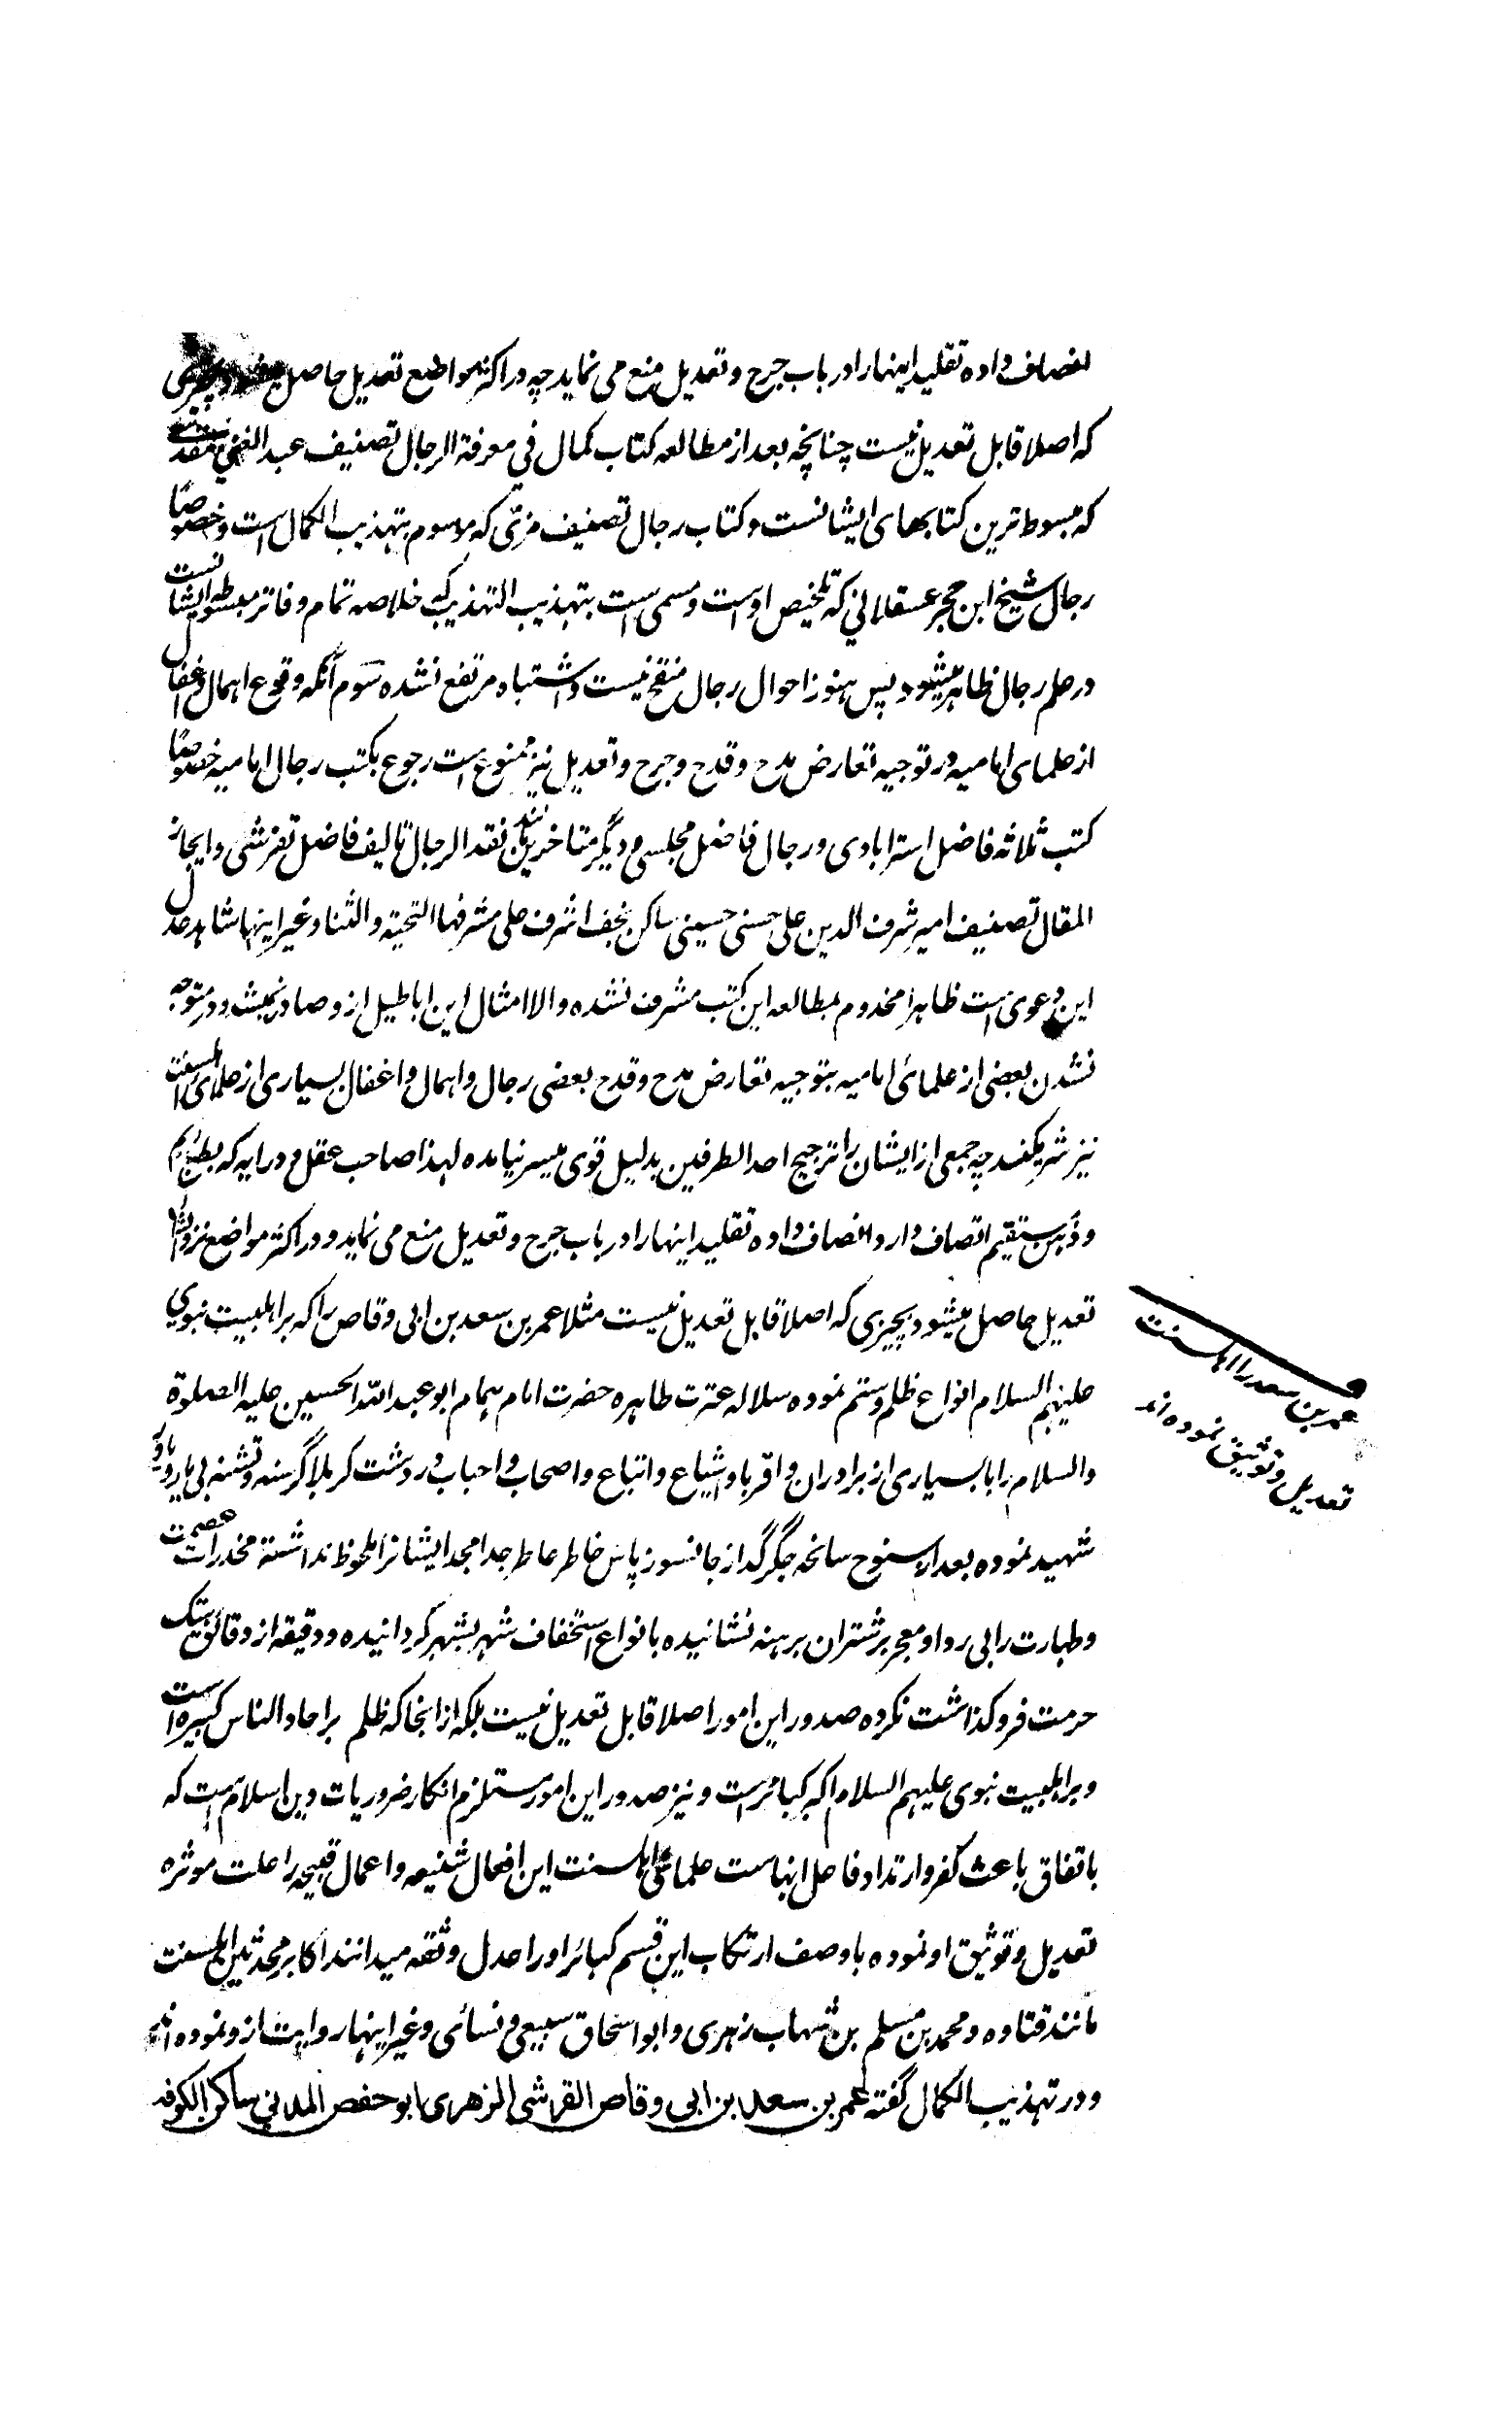 انصاف داده تقلید اینها را در باب جرح و تعدیل منع می نماید چه در اکثر مواضع تعدیل حاصل میشود بچیزی
که اصلا قابل تعدیل نیست چنانچه بعد از مطالعه کتاب کمال فی معرفة الرجال تصنیف عبد الغنی مقدسی
که مبسوط ترین کتابهای ایشانست و کتاب رجال تصنیف مزی که موسوم بتهذیب الکمال است و خصوصا
رجال شیخ ابن حجر عسقلانی که تلخیص اوست و مسمی است بتهذیب التهذیب که خلاصه تمام دفاتر مبسوطه ایشانست
در علم رجال ظاهر میشود پس هنوز احوال رجال منقح نیست و اشتباه مرتفع نشده سوم آنکه وقوع اهمال و اغفال
از علمای امامیه در توجیه تعارض مدح و قدح و جرح و تعدیل نیز ممنوع است رجوع بکتب رجال امامیه خصوصا
کتب ثلاثه فاضل استرابادی و رجال فاضل مجلسی و دیگر متاخرین مانند نقد الرجال تالیف فاضل تفرشی و ایجاز
المقال تصنیف امیر شرف الدین علی حسنی حسینی ساکن نجف اشرف علی مشرفها التحیة و الثنا و غیر اینها شاهد عدل
این دعوی است ظاهرا مخدوم بمطالعه این کتب مشرف نشده و الا امثال این اباطیل ازو صادر نمیشد و در متوجه
نشدن بعضی از علمائی امامیه بتوجیه تعارض مدح و قدح بعضی رجال و اهمال و اغفال بسیاری از علمای اهلسنت
نیز شریکند چه جمعی از ایشان را ترجیح احد الطرفین بدلیل قوی میسر نیامده لهذا صاحب عقل و درایه که بطبع سلیم
و ذهن مستقیم اتصاف دارد انصاف داده تقلید اینها را در باب جرح و تعدیل منع می نماید و در اکثر مواضع نزد ایشان
تعدیل حاصل میشود بچیزی که اصلا قابل تعدیل نیست مثلا عمر بن سعد بن ابی وقاص را که بر اهلبیت نبوی
علیهم السلام انواع ظلم و ستم نموده سلاله عترت طاهره حضرت امام همام ابو عبد الله الحسین علیه الصلوة
والسلام را با بسیاری از برادران و اقربا و اشیاع و اتباع و اصحاب و احباب در دشت کربلا گرسنه و تشنه بی یار و یاور
شهید نموده بعد از سنوح سانحه جگر گداز جانسوز پاس خاطر عاطر جد امجد ایشانرا ملحوظ نداشته مخدرات عصمت
و طهارت را بی ردا و معجر بر شتران برهنه نشانیده بانواع استخفاف شهر بشهر گردانیده و دقیقه از دقائق هتک
حرمت فروگذاشت نکرده صدور این امور اصلا قابل تعدیل نیست بلکه از انجا که ظلم بر احاد الناس کبیره است
و بر اهلبیت نبوی علیهم السلام اکبر کبائر است و نیز صدور این امور مستلزم انکار ضروریات دین اسلام است که
باتفاق باعث کفر و ارتداد فاعل اینهاست علمای اهلسنت این افعال شنیعه و اعمال قبیحه را علت موثره
تعدیل و توثیق او نموده با وصف ارتکاب این قسم کبائر او را عدل و ثقه میدانند اکابر محدثین اهلسنت
مانند قتاده و محمد بن مسلم بن شهاب زهری و ابو اسحاق سبیعی و نسائی و غیر اینها روایت ازو نموده اند
و در تهذیب الکمال گفته عمر بن سعد بن ابی وقاص القرشی الزهری ابو حفص المدنی ساکن الکوفه
عمر بن سعد را اهلسنت
تعدیل و توثیق نموده اند